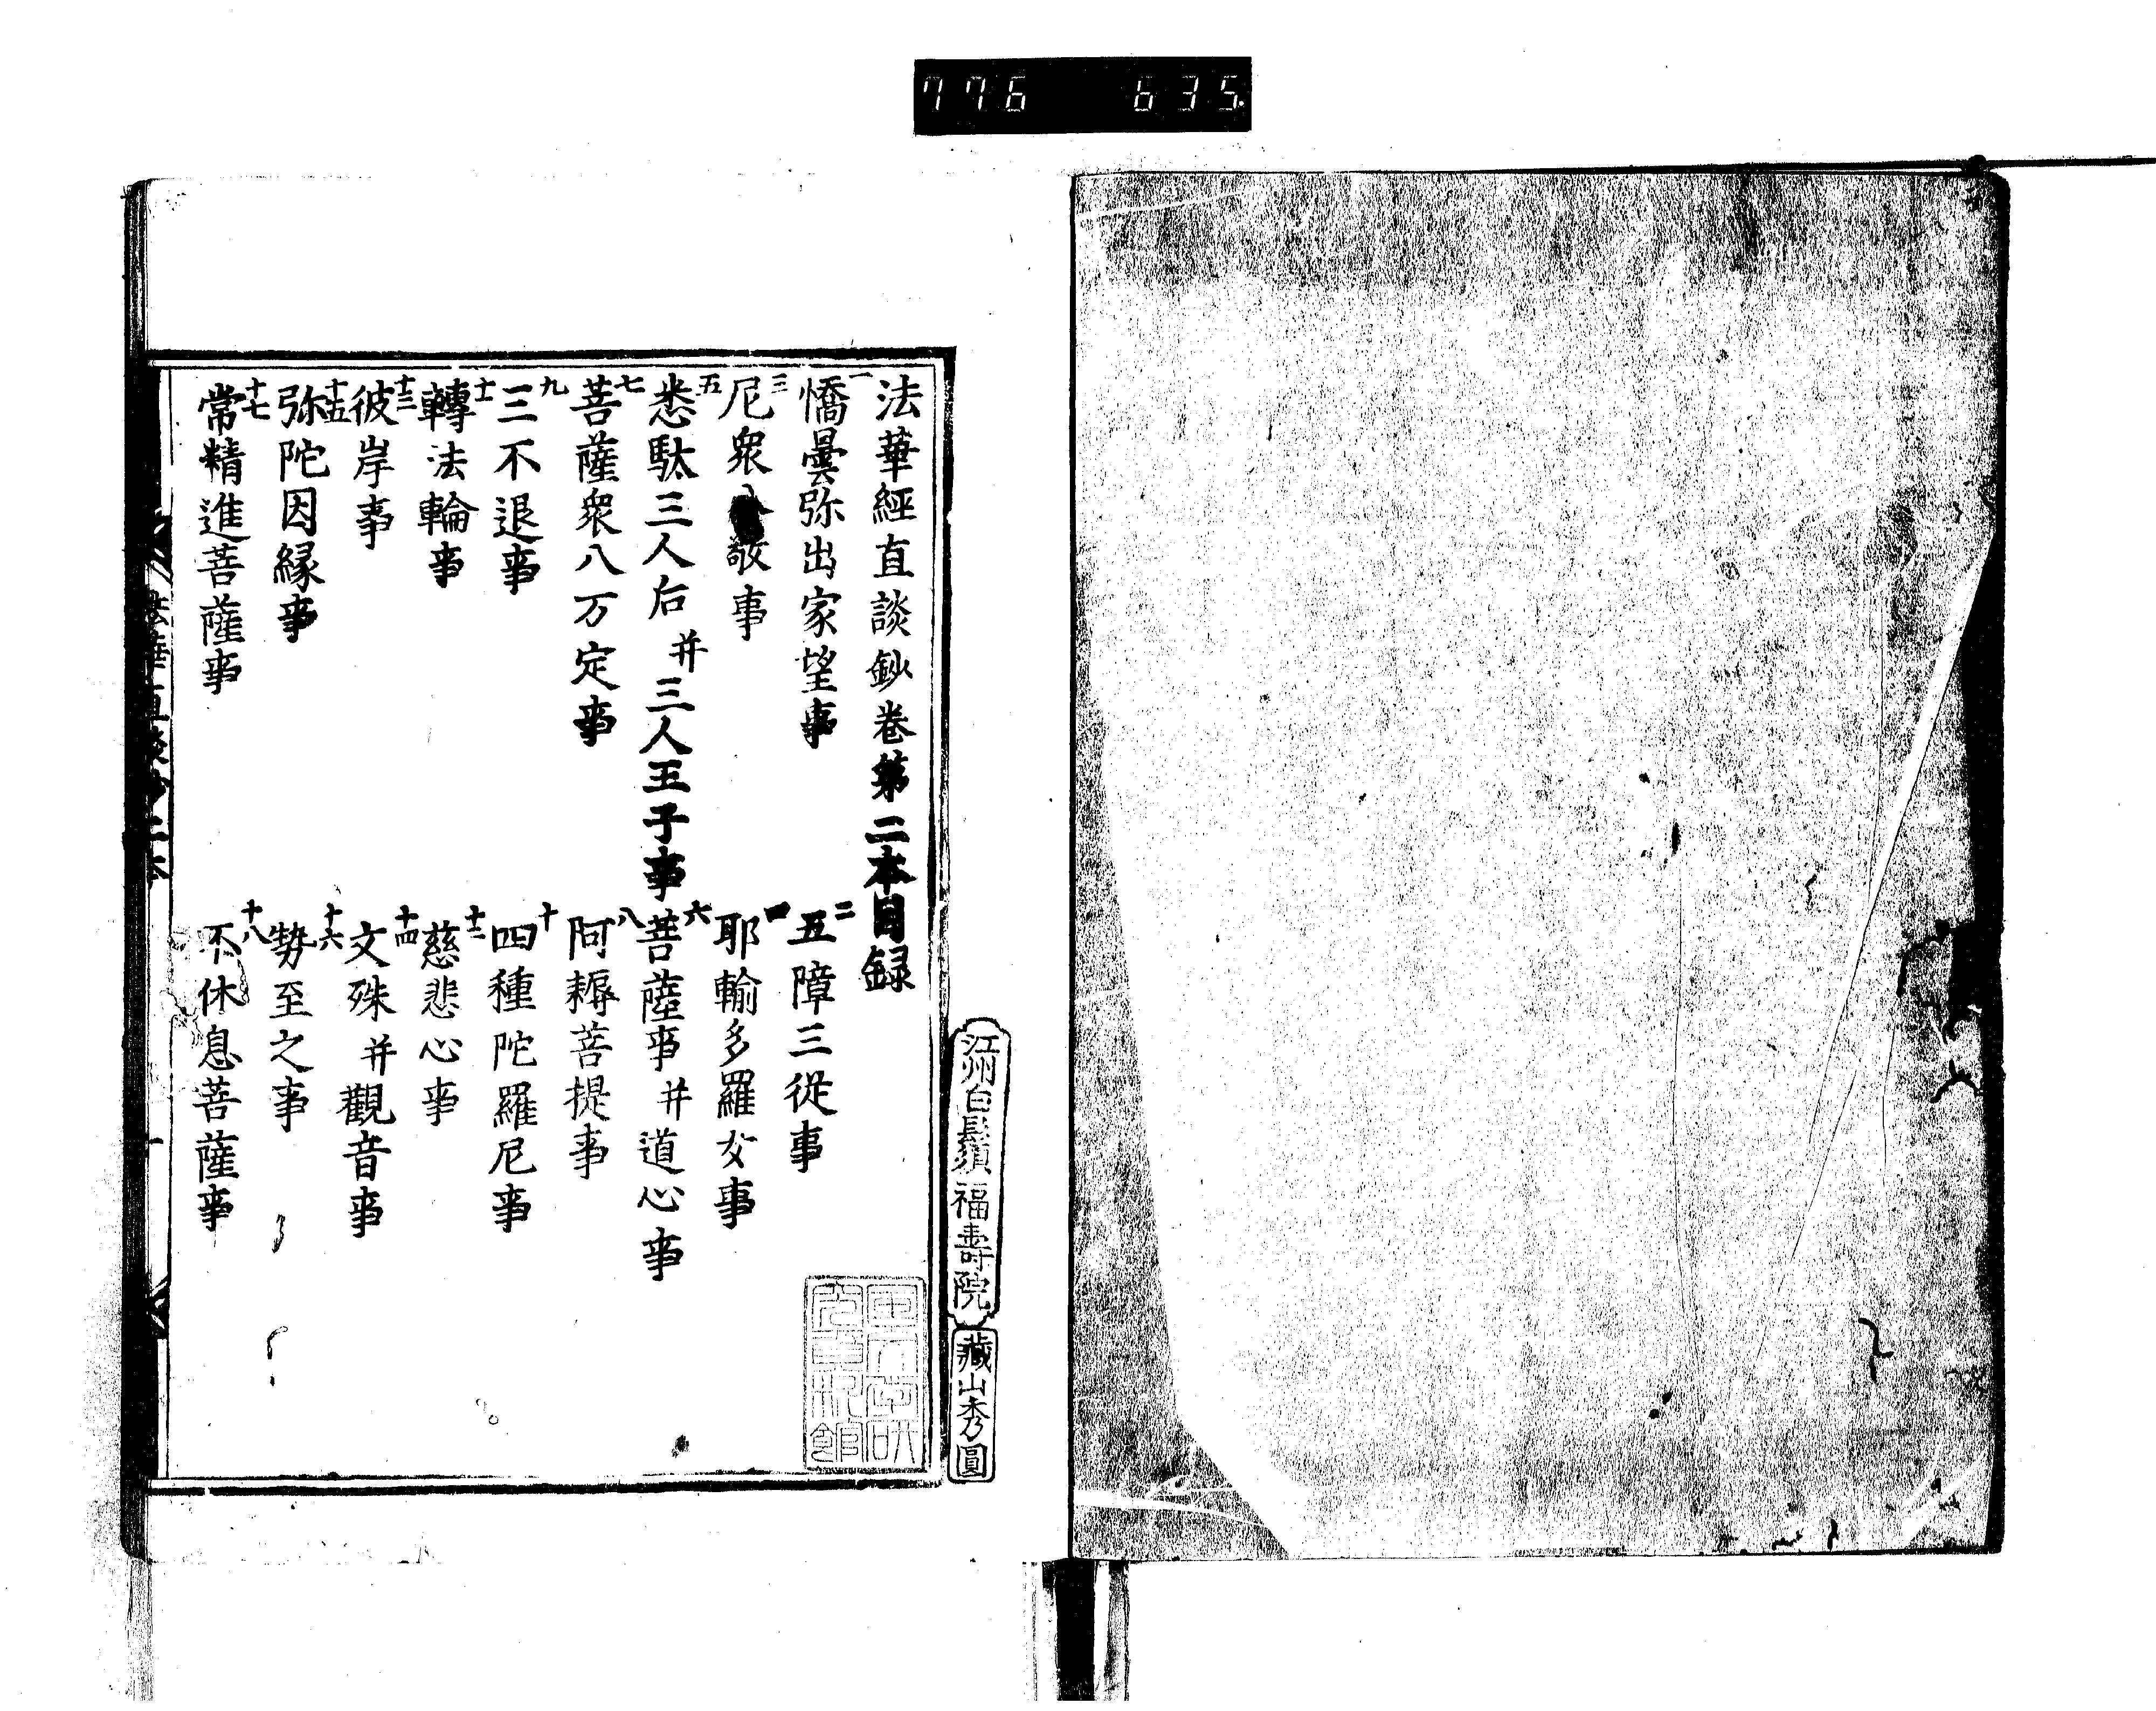 776 635
江州白鬚福壽院
藏山秀圓
法華經直談鈔卷第二本目録
一 憍曇弥出家望事
二 五障三從事
三 尼衆八敬事
四 耶輸多羅女事
五 悉駄三人后并三人王子事
六 菩薩事并道心事
七 菩薩衆八万定事
八 阿耨菩提事
九 三不退事
十 四種陀羅尼事
十一 轉法輪事
十二 慈悲心事
十三 彼岸事
十四 文殊并觀音事
十五 弥陀因縁事
十六 勢至之事
十七 常精進菩薩事
十八 不休息菩薩事
法華直談鈔二本